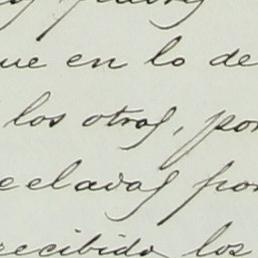 ue en lo de
los otros, por
eeladas por
recibido los